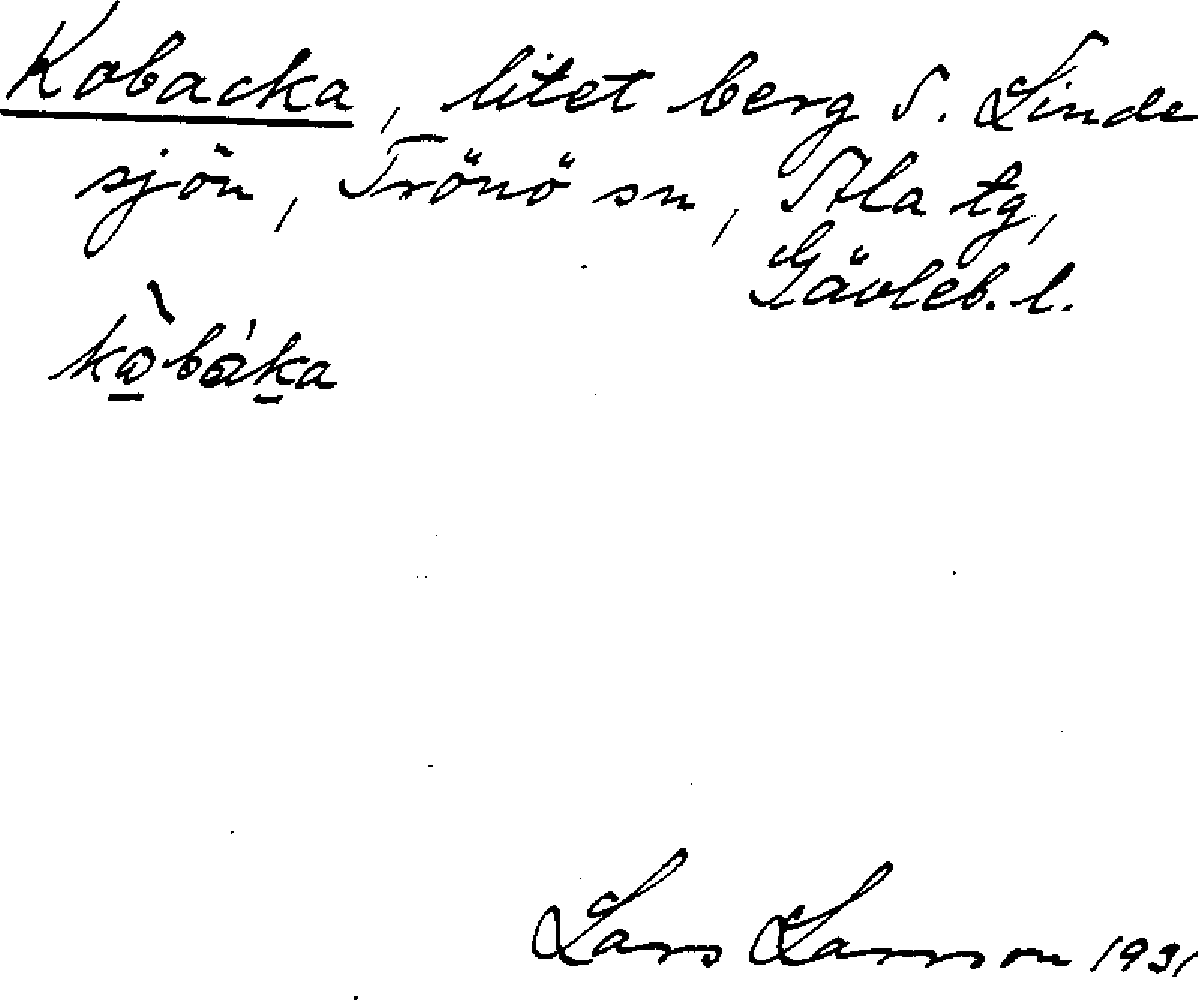 Kobacka, litet berg S. Linde
sjön, Trönö sn, Ala tg,
Gävleb. l.
Lars Larsson 1931